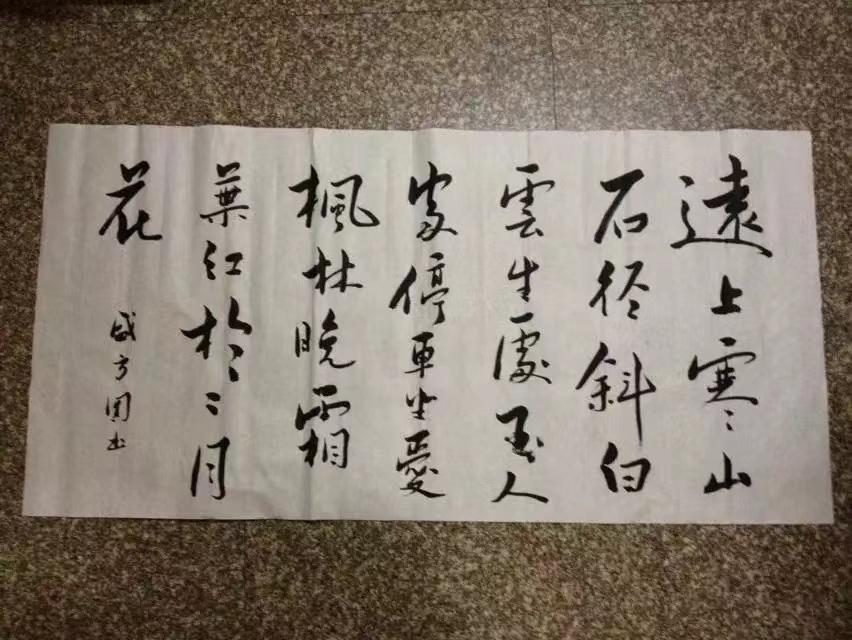 遠上寒山
石径斜白
雲生處有人
家停車坐愛
楓林晚霜
葉红於二月
花
盛方书